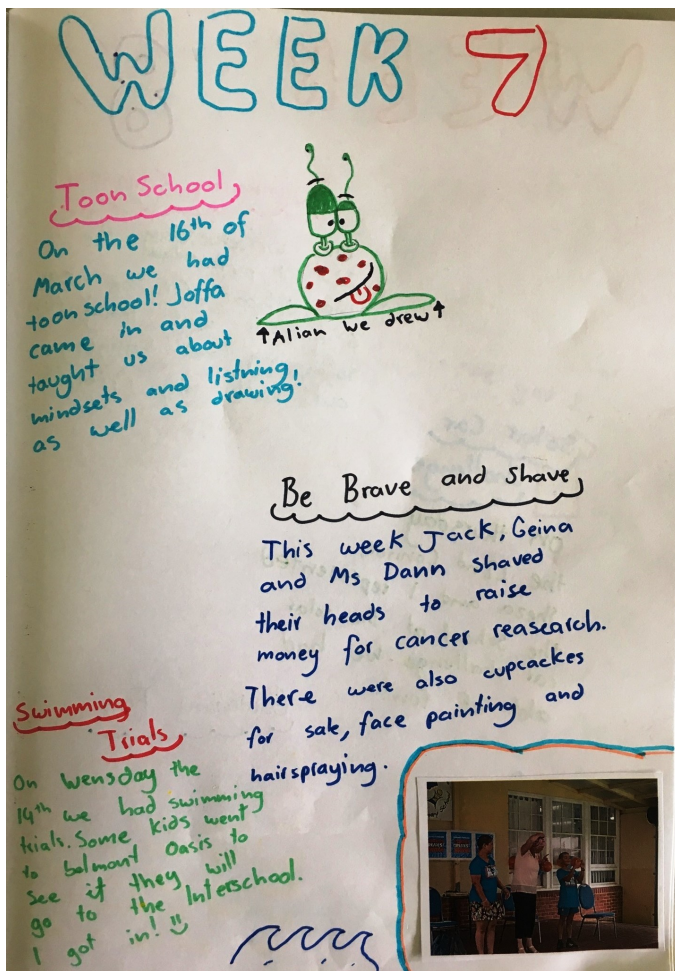 WEEK 7
Toon School
On the 16th of
March we had
toon school! Joffa
came in and
taught us about
mindsets and listning
as well as drawing!
↑Alian we drew↑
Be Brave and Shave
This week Jack, Geina
and Ms Dann shaved
their heads to raise
money for cancer reasearch.
There were also cupcackes
for sale, face painting and
hairspraying.
Swimming
Trials
On wensday the
14th we had swimming
trials. Some kids went
to belmont Oasis to
see if they will
go to the Interschool.
I got in!